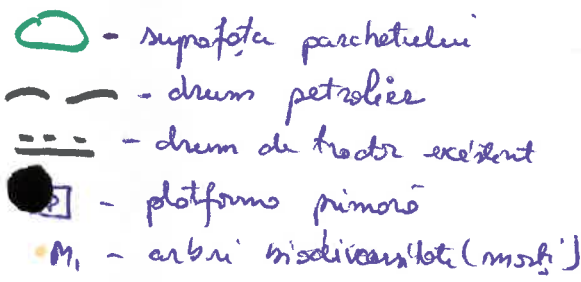 - suprafața parchetului
- drum petrolier
- drum de tractor existent
P - platforma primară
M₁ - arbri biodiversitate (morți)